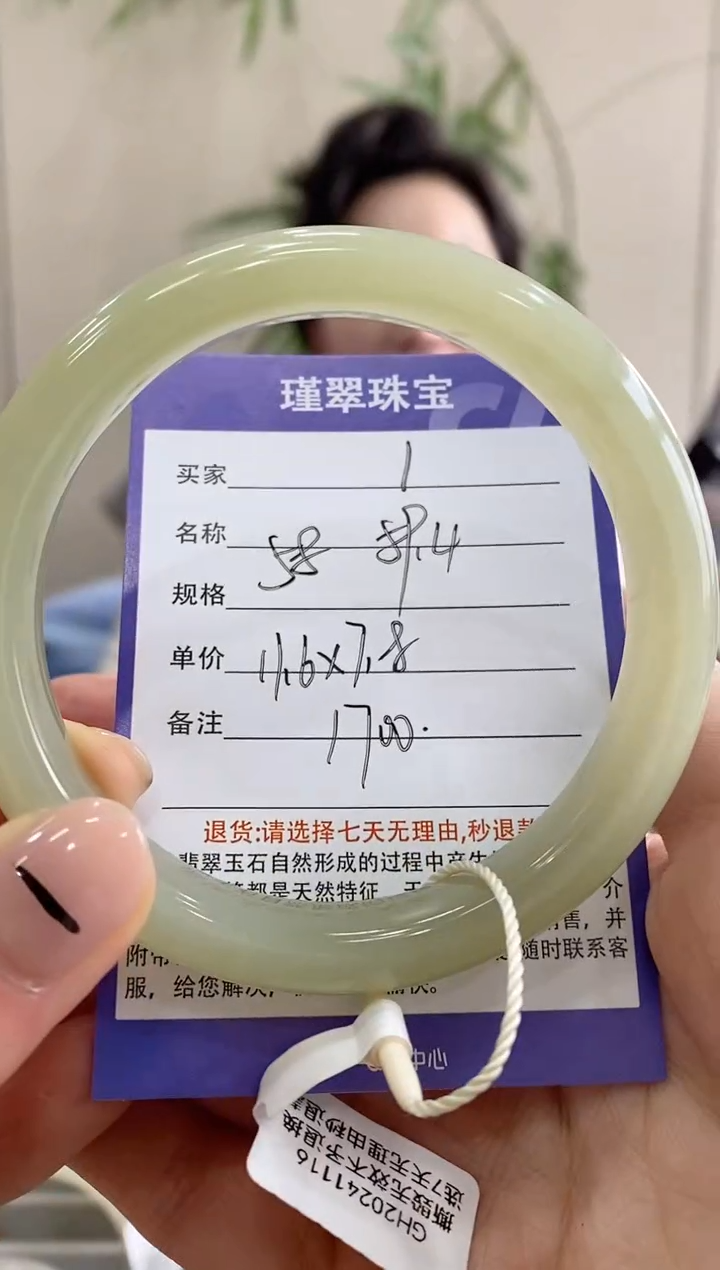 瑾翠珠宝
买家 1
名称 58 59.4
规格
单价 11.6x7.8
备注 1700.
退货:请选择七天无理由,秒退款
翡翠玉石自然形成的过程中产生
都是天然特征
介
售,并
附带 随时联系客
服,给您解决,
中心
GH20241116
撕毁无效不予退换
选7天无理由秒退